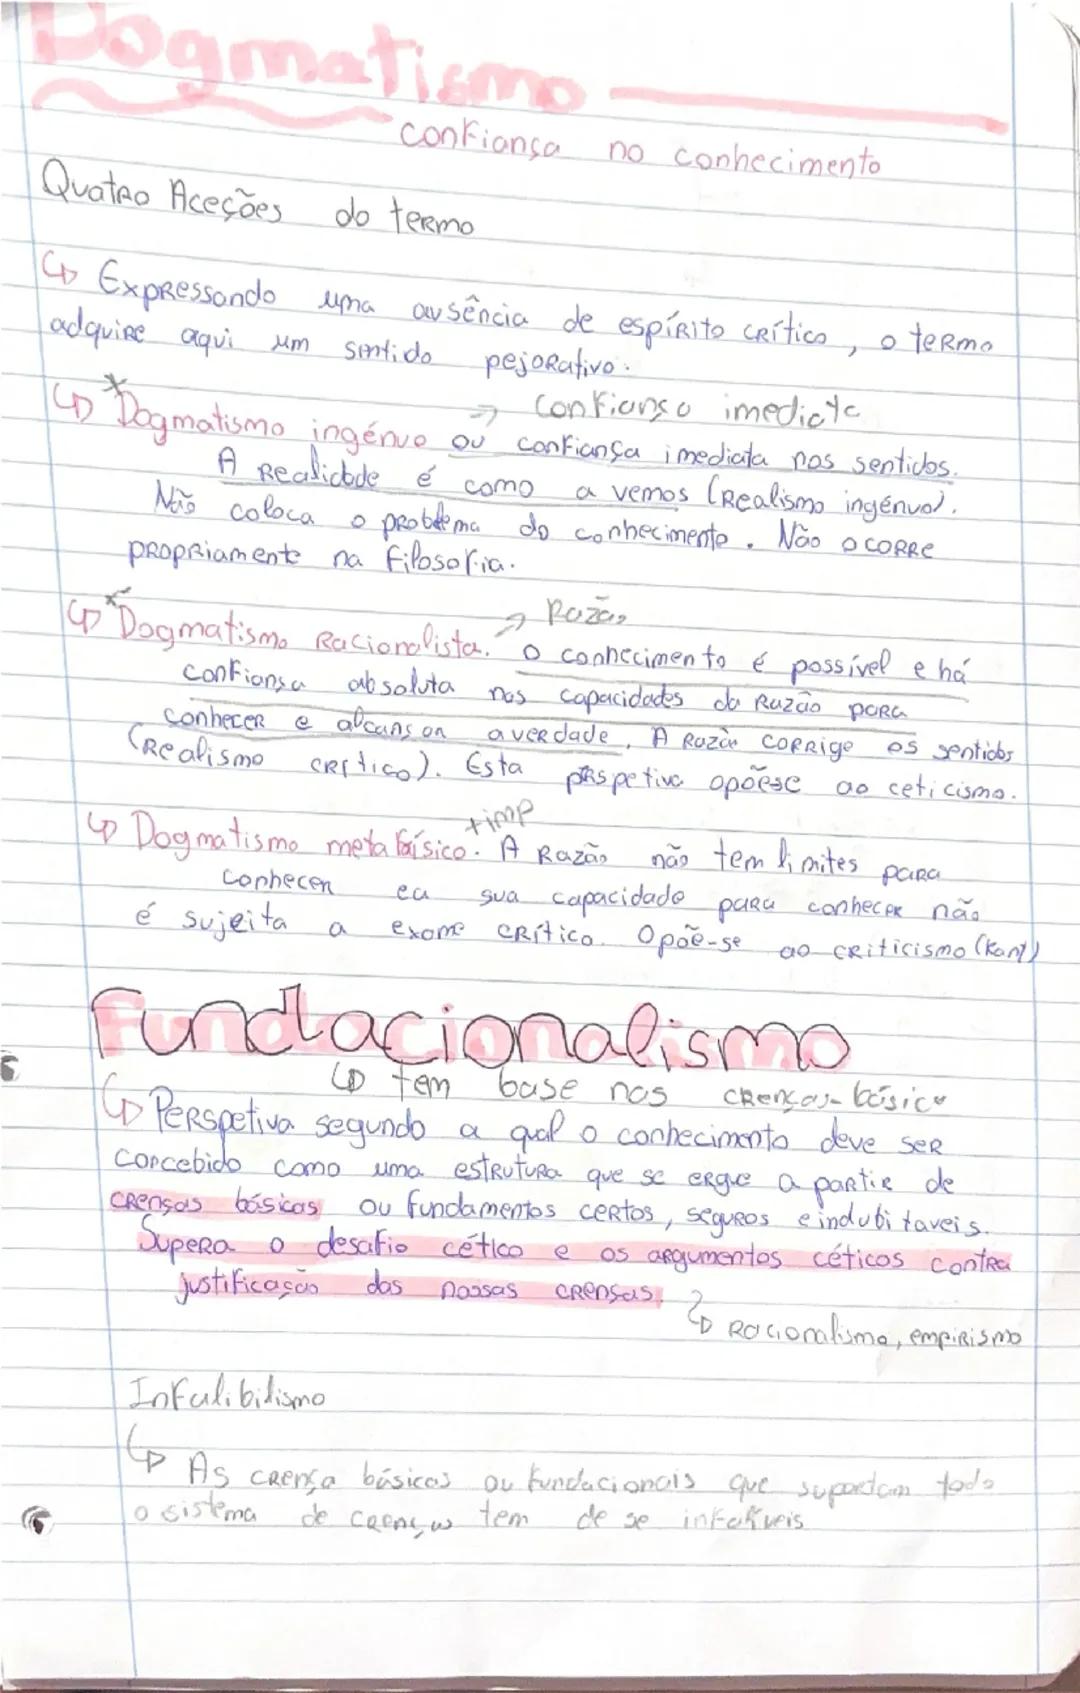 Dogmatismo
confiança no conhecimento
Quatro Aceções do termo
↳ Expressando uma ausência de espírito crítico, o termo
adquire aqui um sentido pejorativo.
→ Confiança imediata
↳ *Dogmatismo ingénuo ou confiança imediata nos sentidos.
A Realidade é como a vemos (Realismo ingénuo).
Não coloca o problema do conhecimento. Não ocorre
propriamente na filosofia.
→ Razão
↳ *Dogmatismo Racionalista. O conhecimento é possível e há
confiança absoluta nas capacidades da Razão para
conhecer e alcançar a verdade. A Razão corrige os sentidos
(Realismo crítico). Esta perspetiva opõese ao ceticismo.
+imp
↳ Dogmatismo metafísico. A Razão não tem limites para
conhecer e a sua capacidade para conhecer não
é sujeita a exame crítico. Opõe-se ao criticismo (Kant)
Fundacionalismo
↳ tem base nas crenças básicas
↳ Perspetiva segundo a qual o conhecimento deve ser
concebido como uma estrutura que se ergue a partir de
crenças básicas ou fundamentos certos, seguros e indubitaveis.
Supera o desafio cético e os argumentos céticos contra
justificação das nossas crenças.
↳ Racionalismo, empirismo
Infalibilismo
↳ As crença básicas ou fundacionais que suportam todo
o sistema de crenças tem de se infalíveis